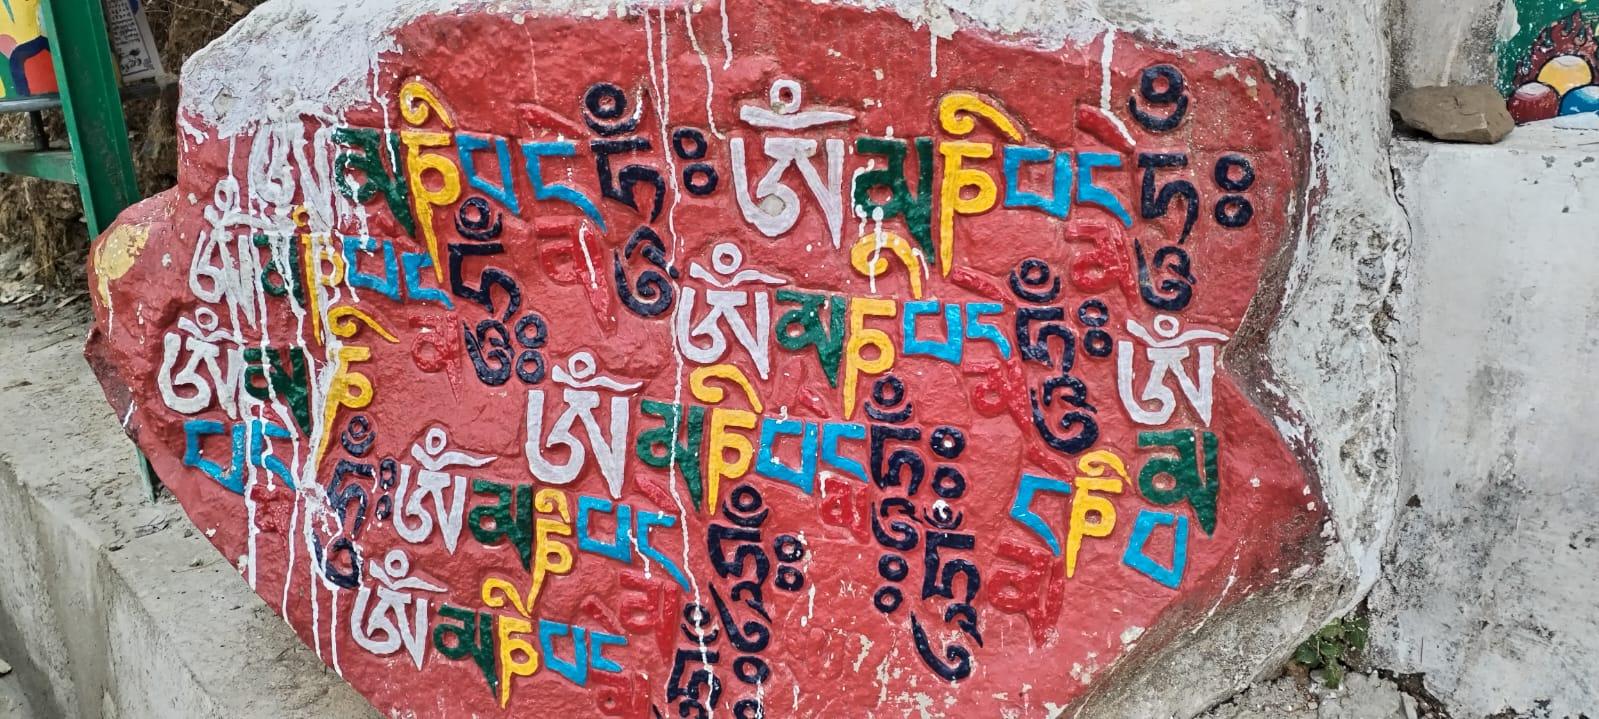 ཨོཾ་མ་ཎི་པདྨེ་ཧཱུྃཿ ཨོཾ་མ་ཎི་པདྨེ་ཧཱུྃཿ
ཨོཾ་མ་ཎི་པདྨེ་ཧཱུྃཿ ཨོཾ་མ་ཎི་པདྨེ་ཧཱུྃཿ
ཨོཾ་མ་ཎི་པདྨེ་ཧཱུྃཿ ཨོཾ་མ་ཎི་པདྨེ་ཧཱུྃཿ ཨོཾ་མ་ཎི་པདྨེ་ཧཱུྃཿ
ཨོཾ་མ་ཎི་པདྨེ་ཧཱུྃཿ
ཨོཾ་མ་ཎི་པདྨེ་ཧཱུྃཿ